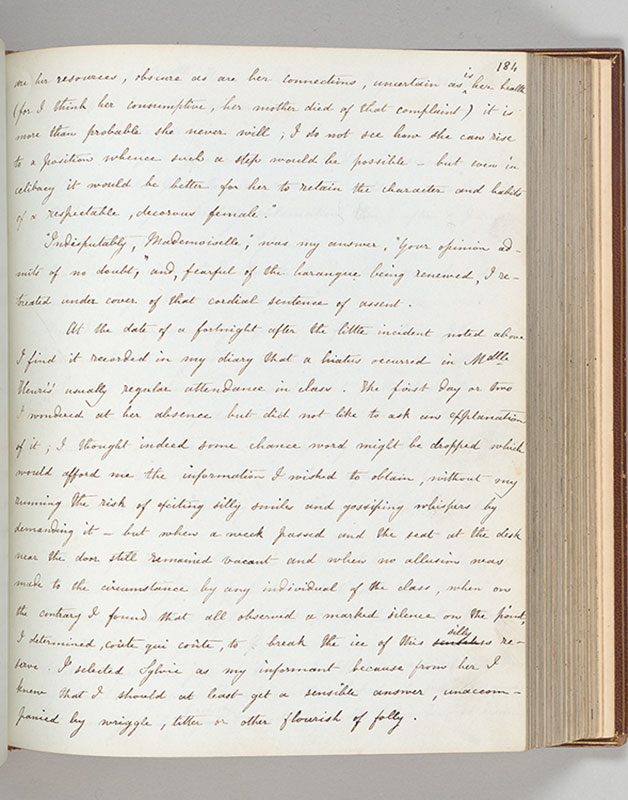 184
are her resources, obscure as are her connections, uncertain as is her health
(for I think her consumptive, her mother died of that complaint) it is
more than probable she never will; I do not see how she can rise
to a position whence such a step would be possible – but even in
celibacy it would be better for her to retain the character and habits
of a respectable, decorous female."
"Indisputably, Mademoiselle", was my answer, "Your opinion ad-
mits of no doubt," and, fearful of the harangue being renewed, I re-
treated under cover of that cordial sentence of assent.
At the date of a fortnight after the little incident noted above
I find it recorded in my diary that a hiatus occurred in Mdlle
Henri's usually regular attendance in class. The first day or two
I wondered at her absence but did not like to ask an explanation
of it; I thought indeed some chance word might be dropped which
would afford me the information I wished to obtain, without my
running the risk of exciting silly smiles and gossiping whispers by
demanding it – but when a week passed and the seat at the desk
near the door still remained vacant and when no allusion was
made to the circumstance by any individual of the class, when on
the contrary I found that all observed a marked silence on the point,
I determined, coûte qui coûte, to break the ice of this silly re-
serve. I selected Sylvie as my informant because from her I
knew that I should at least get a sensible answer, unaccom-
panied by wriggle, titter or other flourish of folly.